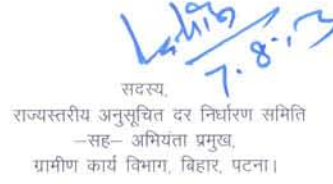 7.8.13
सदस्य,
राज्यस्तरीय अनुसूचित दर निर्धारण समिति
–सह– अभियंता प्रमुख,
ग्रामीण कार्य विभाग, बिहार, पटना।